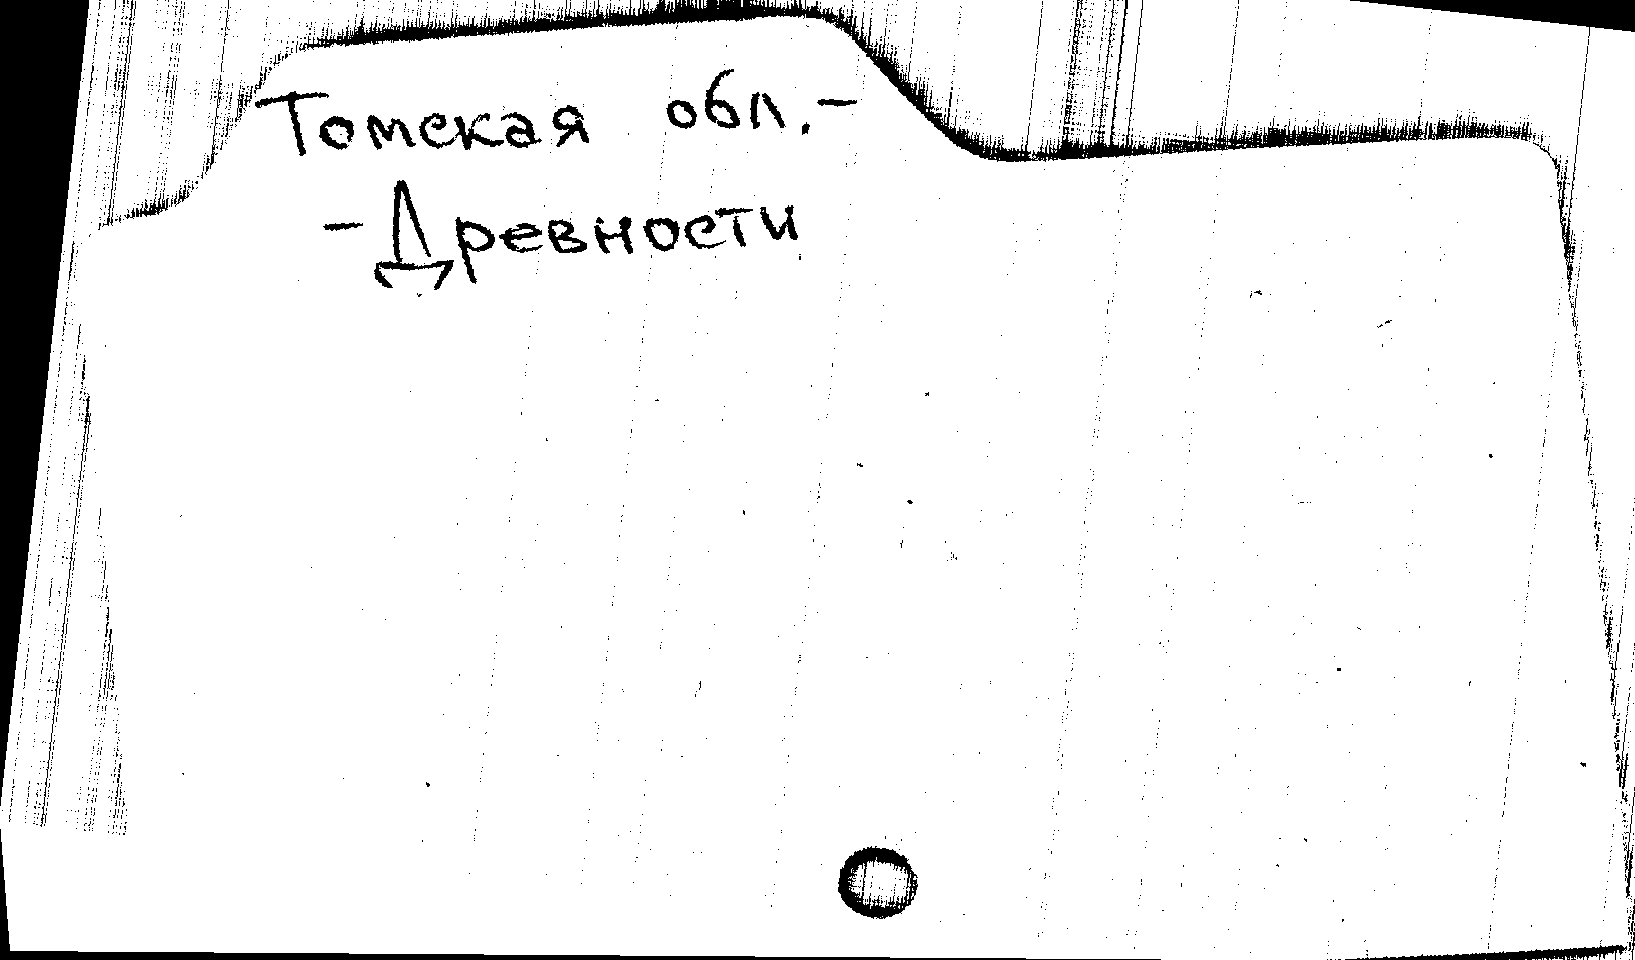 Томская обл.-
-Древности